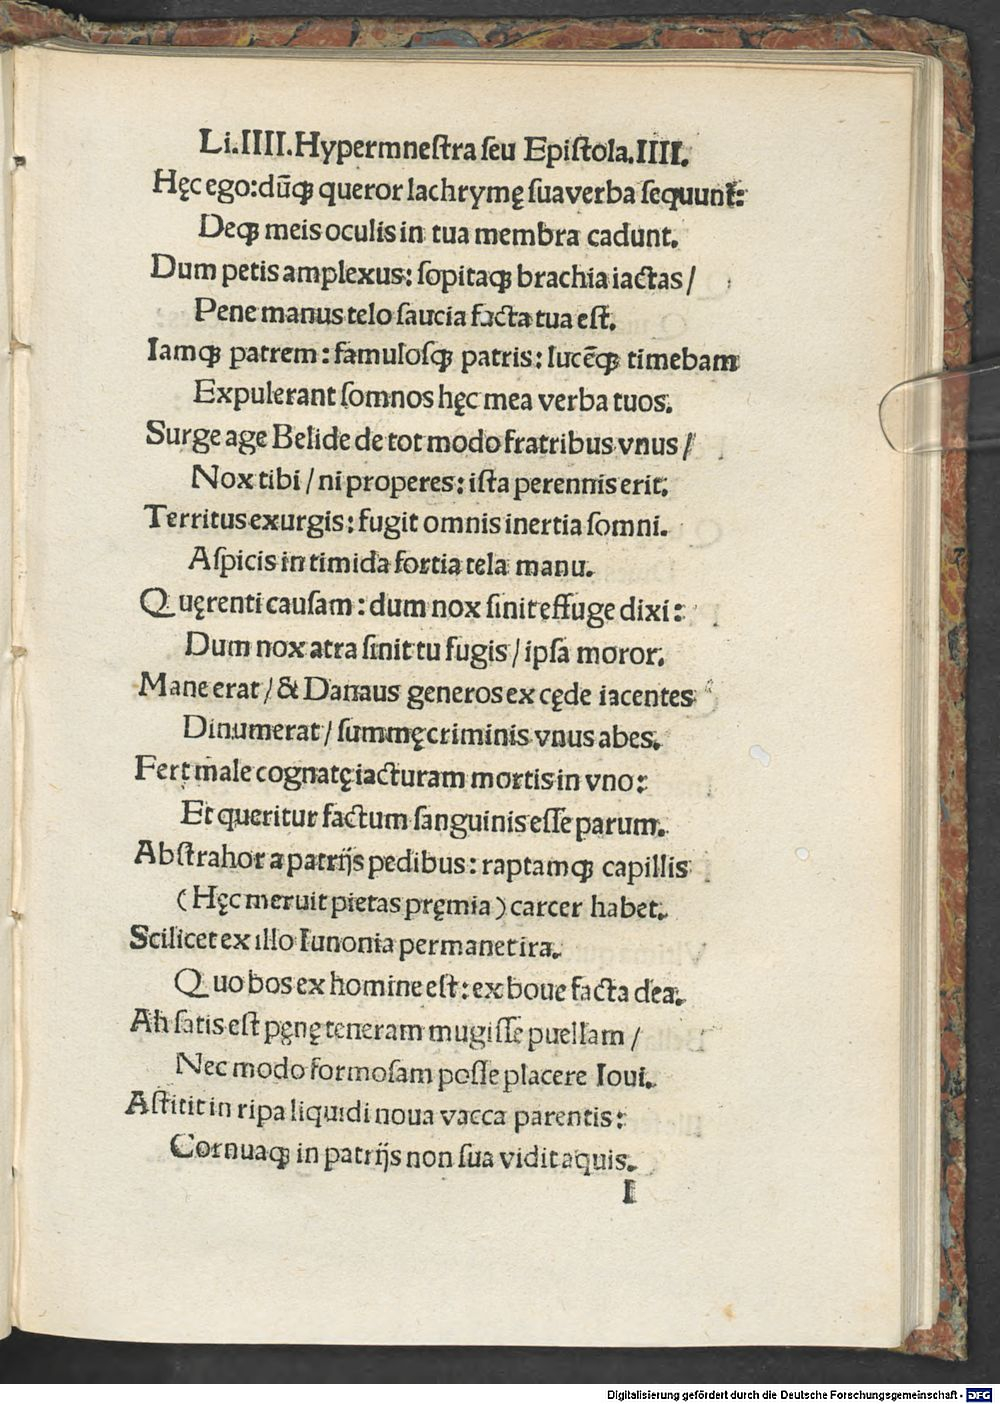 Li.IIII.Hypermneſtra ſeu Epiſtola.IIII.
Hęc ego:dūqꝫ queror lachrymę ſua verba ſequunt̃:
Deqꝫ meis oculis in tua membra cadunt.
Dum petis amplexus: ſopitaqꝫ brachia iactas/
Pene manus telo ſaucia facta tua eſt.
Iamqꝫ patrem: famuloſqꝫ patris: lucēqꝫ timebam
Expulerant ſomnos hęc mea verba tuos.
Surge age Belide de tot modo fratribus vnus/
Nox tibi/ni properes: iſta perennis erit.
Territus exurgis: fugit omnis inertia ſomni.
Aſpicis in timida fortia tela manu.
Quęrenti cauſam: dum nox ſinit effuge dixi:
Dum nox atra ſinit tu fugis/ipſa moror.
Mane erat/& Danaus generos ex cęde iacentes
Dinumerat/ſummę criminis vnus abes.
Fert male cognatę iacturam mortis in vno:
Et queritur factum ſanguinis eſſe parum.
Abſtrahor a patrijs pedibus: raptamqꝫ capillis
(Hęc meruit pietas pręmia) carcer habet.
Scilicet ex illo Iunonia permanet ira.
Quo bos ex homine eſt: ex boue facta dea.
Ah ſatis eſt pęnę teneram mugiſſe puellam/
Nec modo formoſam poſſe placere Ioui.
Aſtitit in ripa liquidi noua vacca parentis:
Cornuaqꝫ in patrijs non ſua vidit aquis.
I
Digitalisierung gefördert durch die Deutsche Forschungsgemeinschaft - DFG